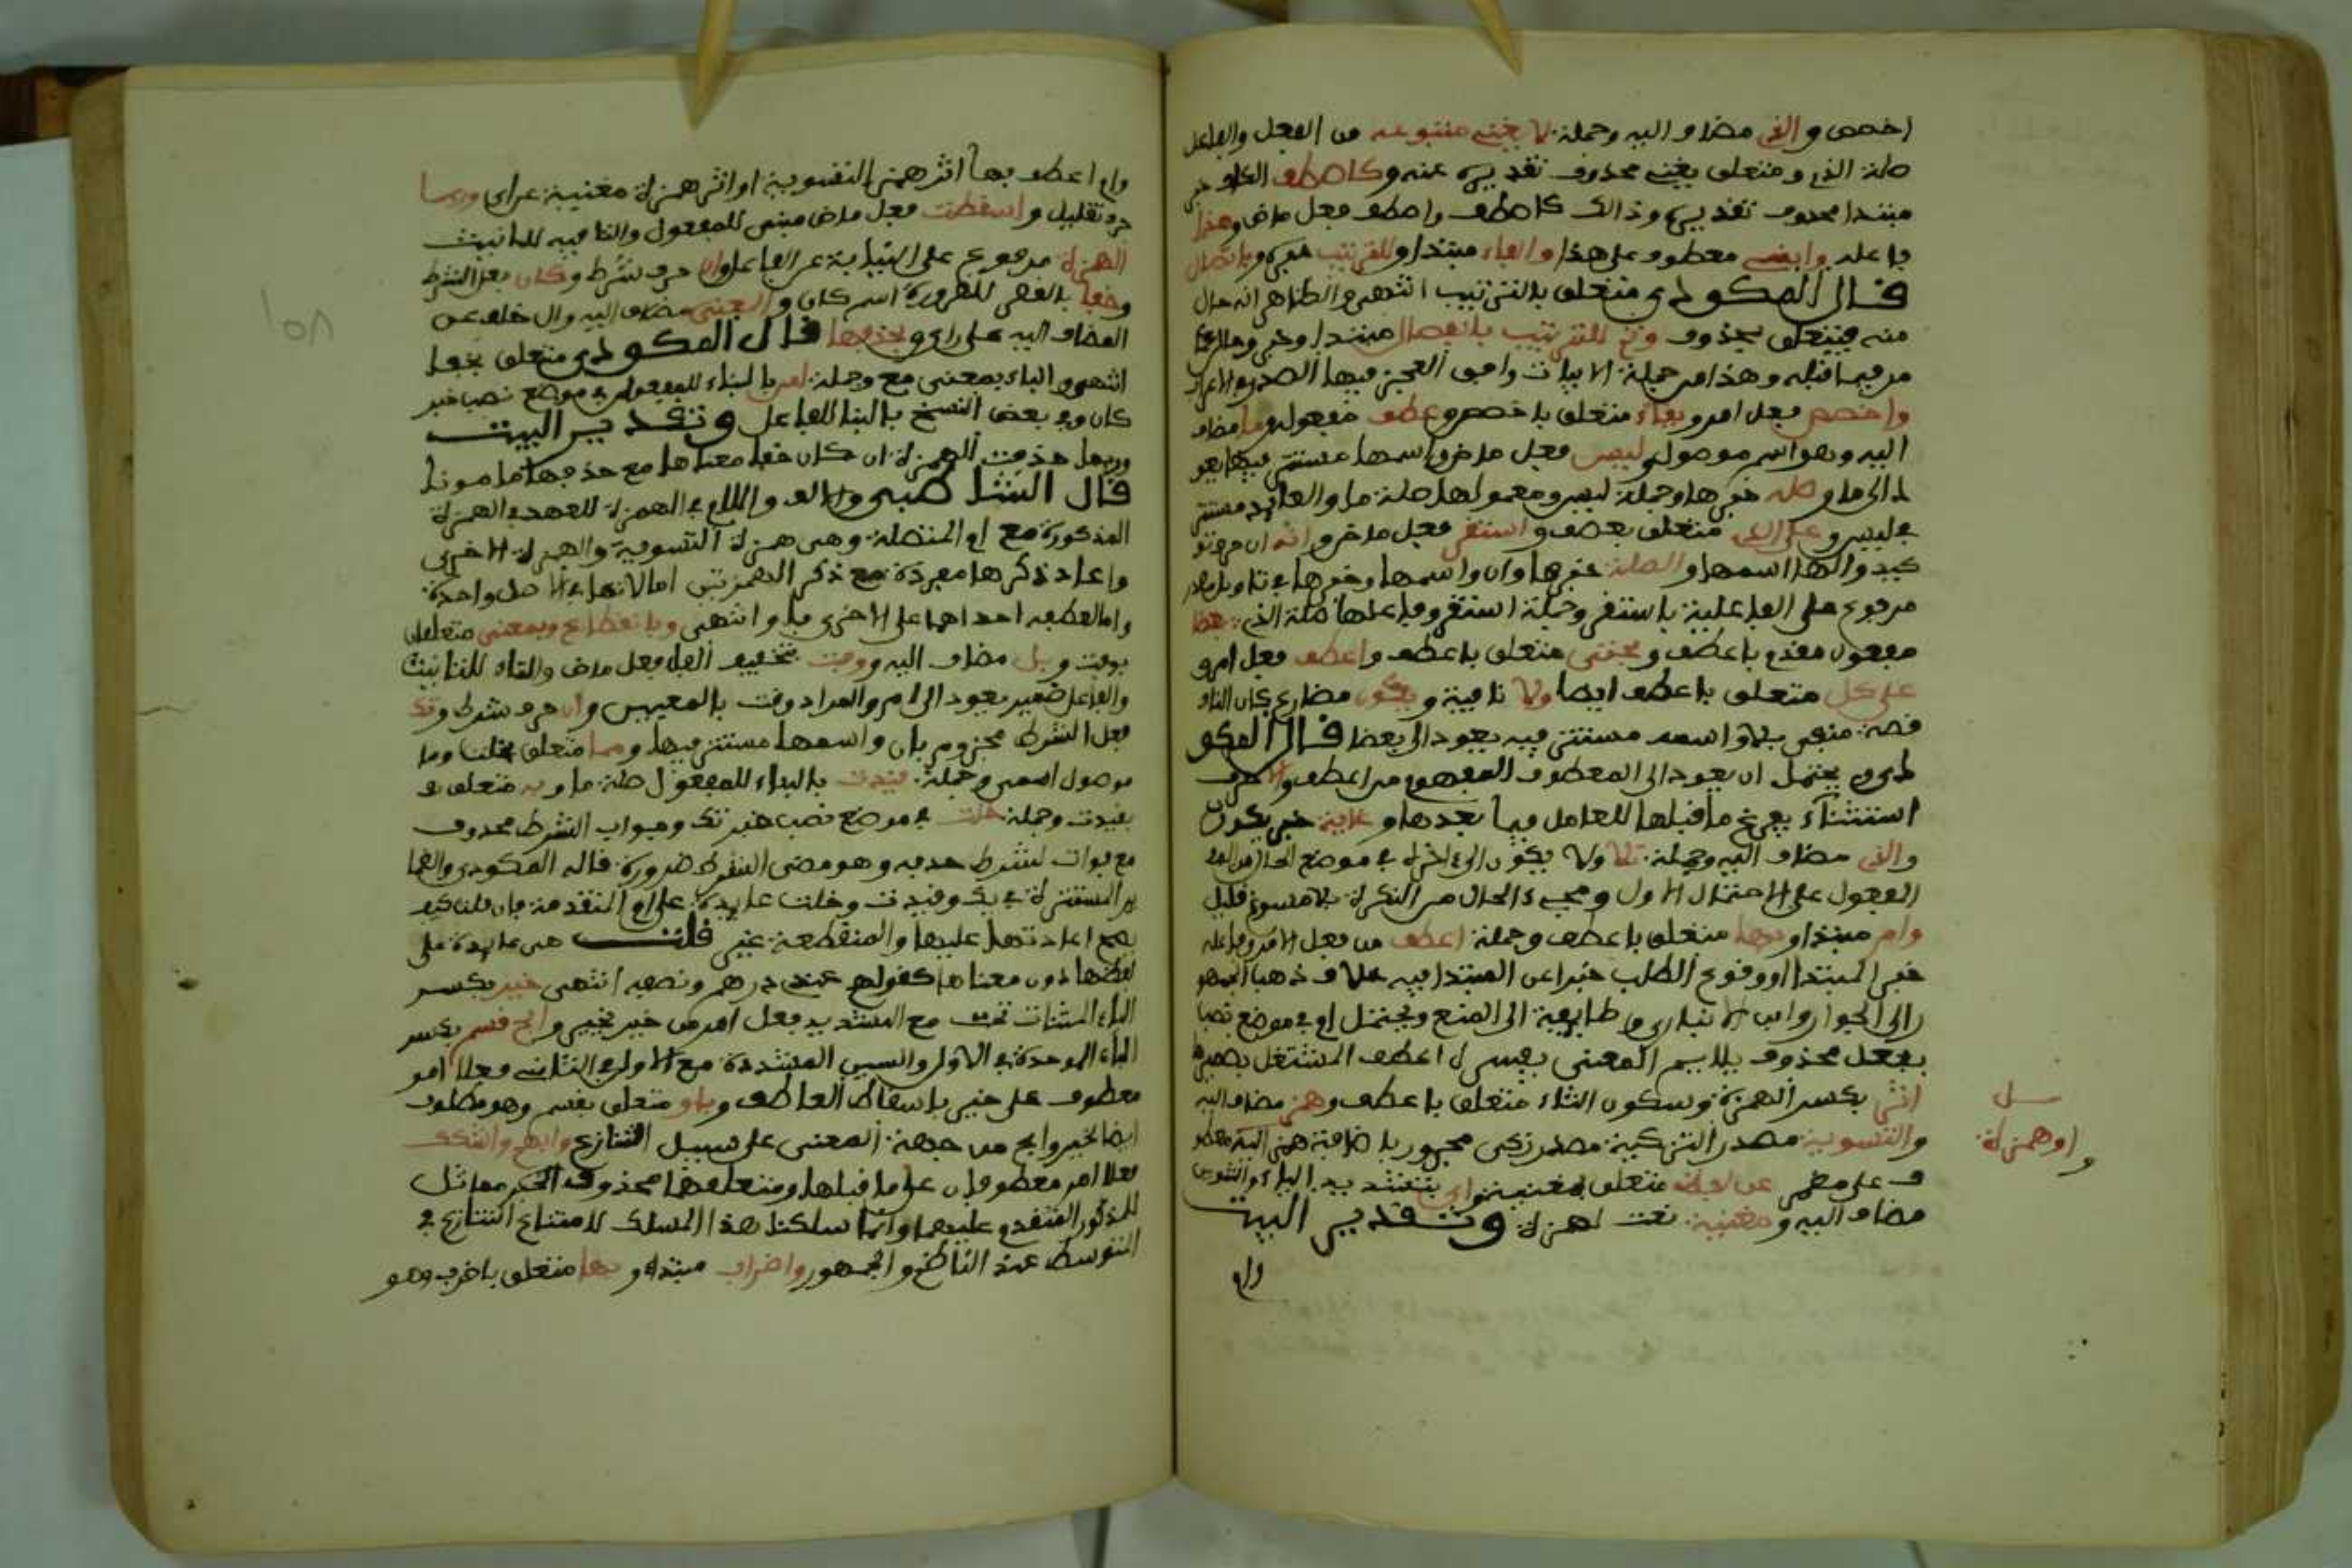 اخصص والذي مضاف اليه وجملة لا يغني متبوعه من الفعل والفاعل
صلة الذي ومتعلق يغني محذوف تقديره عنه وكاصطف الكاف خبر
مبتدا محذوف تقديره وذالك كاصطف واصطف فعل ماض وهذا
فاعله وابني معطوف على هذا والفاء مبتدا وللترتيب خبره وباتصال
قال المكودي متعلق بالترتيب انتهى والظاهر انه حال
منه فيتعلق بمحذوف وثم للترتيب بانفصال مبتدا وخبر
مر فيما قبله وهذا من جملة الابيات وافق العجز فيها الصدر في الاعراب
واخصص فعل امر وبفاء متعلق باخصص وعطف مفعوله وما مضاف
اليه وهو اسم موصول وليس فعل ماض واسمها مستتر فيها يعو
د الى ما وصله خبرها وجملة ليس ومعموليها صلة ما والعائد مستتر
في ليس وعلى الذي متعلق بعطف واستقر فعل ماض وانه ان حرف تو
كيد والها اسمها والصلة خبرها وان واسمها وخبرها في تاويل مصدر
مرفوع على الفاعلية باستقر وجملة استقر وفاعلها صلة الذي بعضا
مفعول مقدم باعطف وبحتى متعلق باعطف واعطف فعل امر و
على كل متعلق باعطف ايضا ولا نافية ويكون مضارع كان النا
قصة منفي بلا واسمه مستتر فيه يعود الى بعضا قال المكو
دي ويحتمل ان يعود الى المعطوف المفهوم من اعطف والا حرف
استثناء يفرغ ما قبلها للعامل فيما بعدها وغاية خبر يكون
والذي مضاف اليه وجملة تلا ولا يكون الى اخره في موضع الحال من
المفعول على الاحتمال الاول ومجيء الحال من النكرة بلا مسوغ قليل
وام مبتدا وبها متعلق باعطف وجملة اعطف من فعل الامر وفاعله
خبر المبتدا ووقوع الطلب خبرا عن المبتدا فيه خلاف ذهب الجمهو
ر الى الجواز وابن الانباري وطائفة الى المنع ويحتمل ام في موضع نصب
بفعل محذوف يلايم المعنى يفسره اعطف المشتغل بضميرها
اثر بكسر الهمزة وسكون الثاء متعلق باعطف وهمز مضاف اليه
والتسوية مصدر التزكية مصدر زكى مجرور باضافة همز اليه معطو
ف على همز عن لفظ متعلق بمغنية واي بتشديد الياء والتنوين
مضاف اليه ومغنية نعت لهمزة وتقدير البيت
وام
سل
او همزة
وام اعطف بها اثر همز التسوية او اثر همزة مغنية عن اي وربما
حرف تقليل واسقطت فعل ماض مبني للمفعول والتا فيه للتانيث
الهمزة مرفوع على النيابة عن الفاعل وان حرف شرط وكان فعل الشرط
وخفا بالقصر للضرورة اسم كان والمعنى مضاف اليه وال خلف عن
المضاف اليه على راي وبحذفها قال المكودي متعلق بخفا
انتهى والباء بمعنى مع وجملة امن بالبناء للمفعول في موضع نصب خبر
كان وفي بعض النسخ بالبنا للفاعل وتقدير البيت
وربما حذفت الهمزة ان كان خفا معناها مع حذفها مامونا
قال الشاطبي والالف واللام في الهمزة للعهد في الهمزة
المذكورة مع ام المتصلة وهي همزة التسوية والهمزة الاخرى
واعاد ذكرها مفردة مع ذكر الهمزتين اما لانها في الاصل واحدة
واما لعطفه احداهما على الاخرى باو انتهى وبانقطاع وبمعنى متعلقان
بوفت وبل مضاف اليه ووفت بتخفيف الفا فعل ماض والتاء للتانيث
والفاعل ضمير يعود الى ام والمراد وفت بالمعنيين وان حرف شرط وتك
فعل الشرط مجزوم بان واسمها مستتر فيها ومما متعلق بخلت وما
موصول اسمي وجملة قيدت بالبناء للمفعول صلة ما وبه متعلق
بقيدت وجملة خلت في موضع نصب خبر تك وجواب الشرط محذوف
مع فوات شرط حذفه وهو مضي الشرط ضرورة قاله المكودي والضما
ير المستترة في تك وقيدت وخلت عايدة على ام المتقدمة فان قلت كيف
يصح اعادتها عليها والمنقطعة غير قلت هي عايدة على
لفظها دون معناها كقولهم عندي درهم ونصفه انتهى خير بكسر
الياء المثنات تحت مع التشديد فعل امر من خير يخير وابح قسم بكسر
الباء الموحدة في الاول والسين المشددة مع الاول في الثاني فعلا امر
معطوف على خير باسقاط العاطف وباو متعلق بقسم وهو مطلوب
ايضا لخير وابح من جهة المعنى على سبيل التنازع وابهم واشكك
فعلا امر معطوفان على ما قبلها ومتعلقهما محذوف الخبر مماثل
للمذكور المتقدم عليهما وانما سلكنا هذا المسلك لامتناع التنازع في
المتوسط عند الناظم والجمهور واضراب مبتدا وبها متعلق باضرب وهو